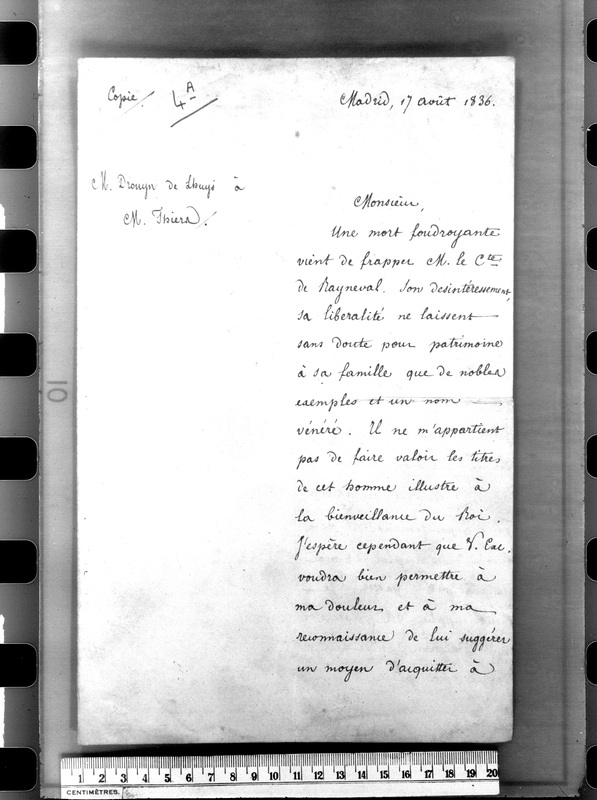 Copie.
4A
Madrid, 17 août 1836.
M. Drouyn de Lhuys à
M. Thiers.
Monsieur,
Une mort foudroyante
vient de frapper M. le Cte
de Rayneval. Son desintéressement,
sa liberalité ne laissent
sans doute pour patrimoine
à sa famille que de nobles
exemples et un nom
vénéré. Il ne m'appartient
pas de faire valoir les titres
de cet homme illustre à
la bienveillance du Roi.
J'espère cependant que V. Exc.
voudra bien permettre à
ma douleur et à ma
reconnaissance de lui suggérer
un moyen d'acquitter à
10
1 2 3 4 5 6 7 8 9 10 11 12 13 14 15 16 17 18 19 20
CENTIMÈTRES.